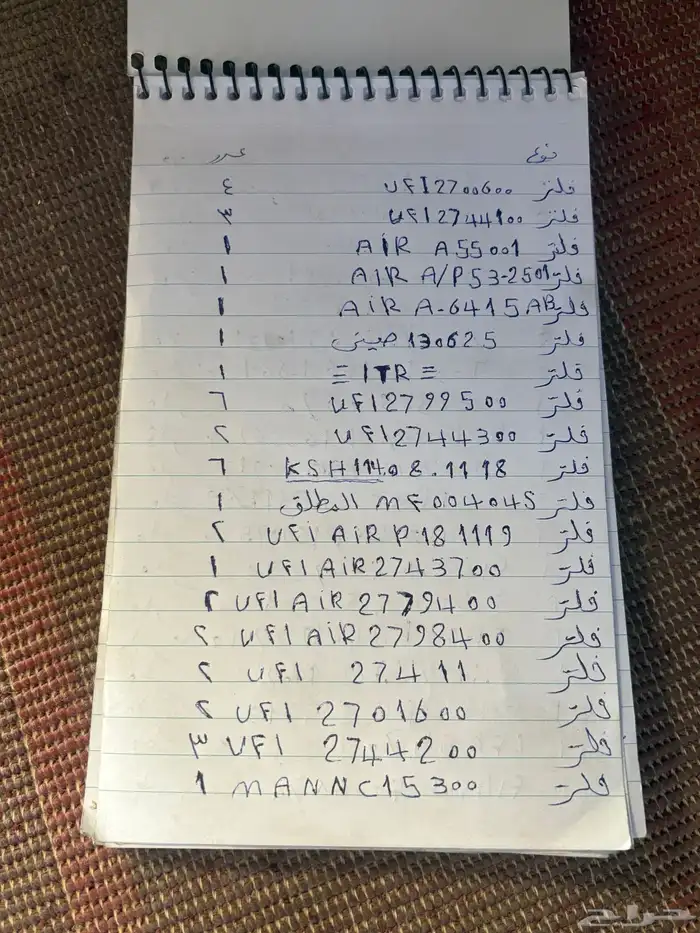 نوع عدد
فلتر UFI 2700600 ٤
فلتر UFI 2744100 ٣
فلتر AIR A55001 ١
فلتر AIR A/P53-2501 ١
فلتر AIR A-6415AB ١
فلتر 130625 صيني ١
فلتر ≡ ITR ≡ ١
فلتر UFI 2799500 ٦
فلتر UFI 2744300 ٢
فلتر KSH1140 8.1118 ٦
فلتر MF004045 المطلق ١
فلتر UFI AIR P.181119 ٢
فلتر UFI AIR 2743700 ١
فلتر UFI AIR 2779400 ٢
فلتر UFI AIR 2798400 ٢
فلتر UFI 27.411 ٢
فلتر UFI 2701600 ٢
فلتر UFI 2744200 ٣
فلتر MANN C15300 ١
حراج